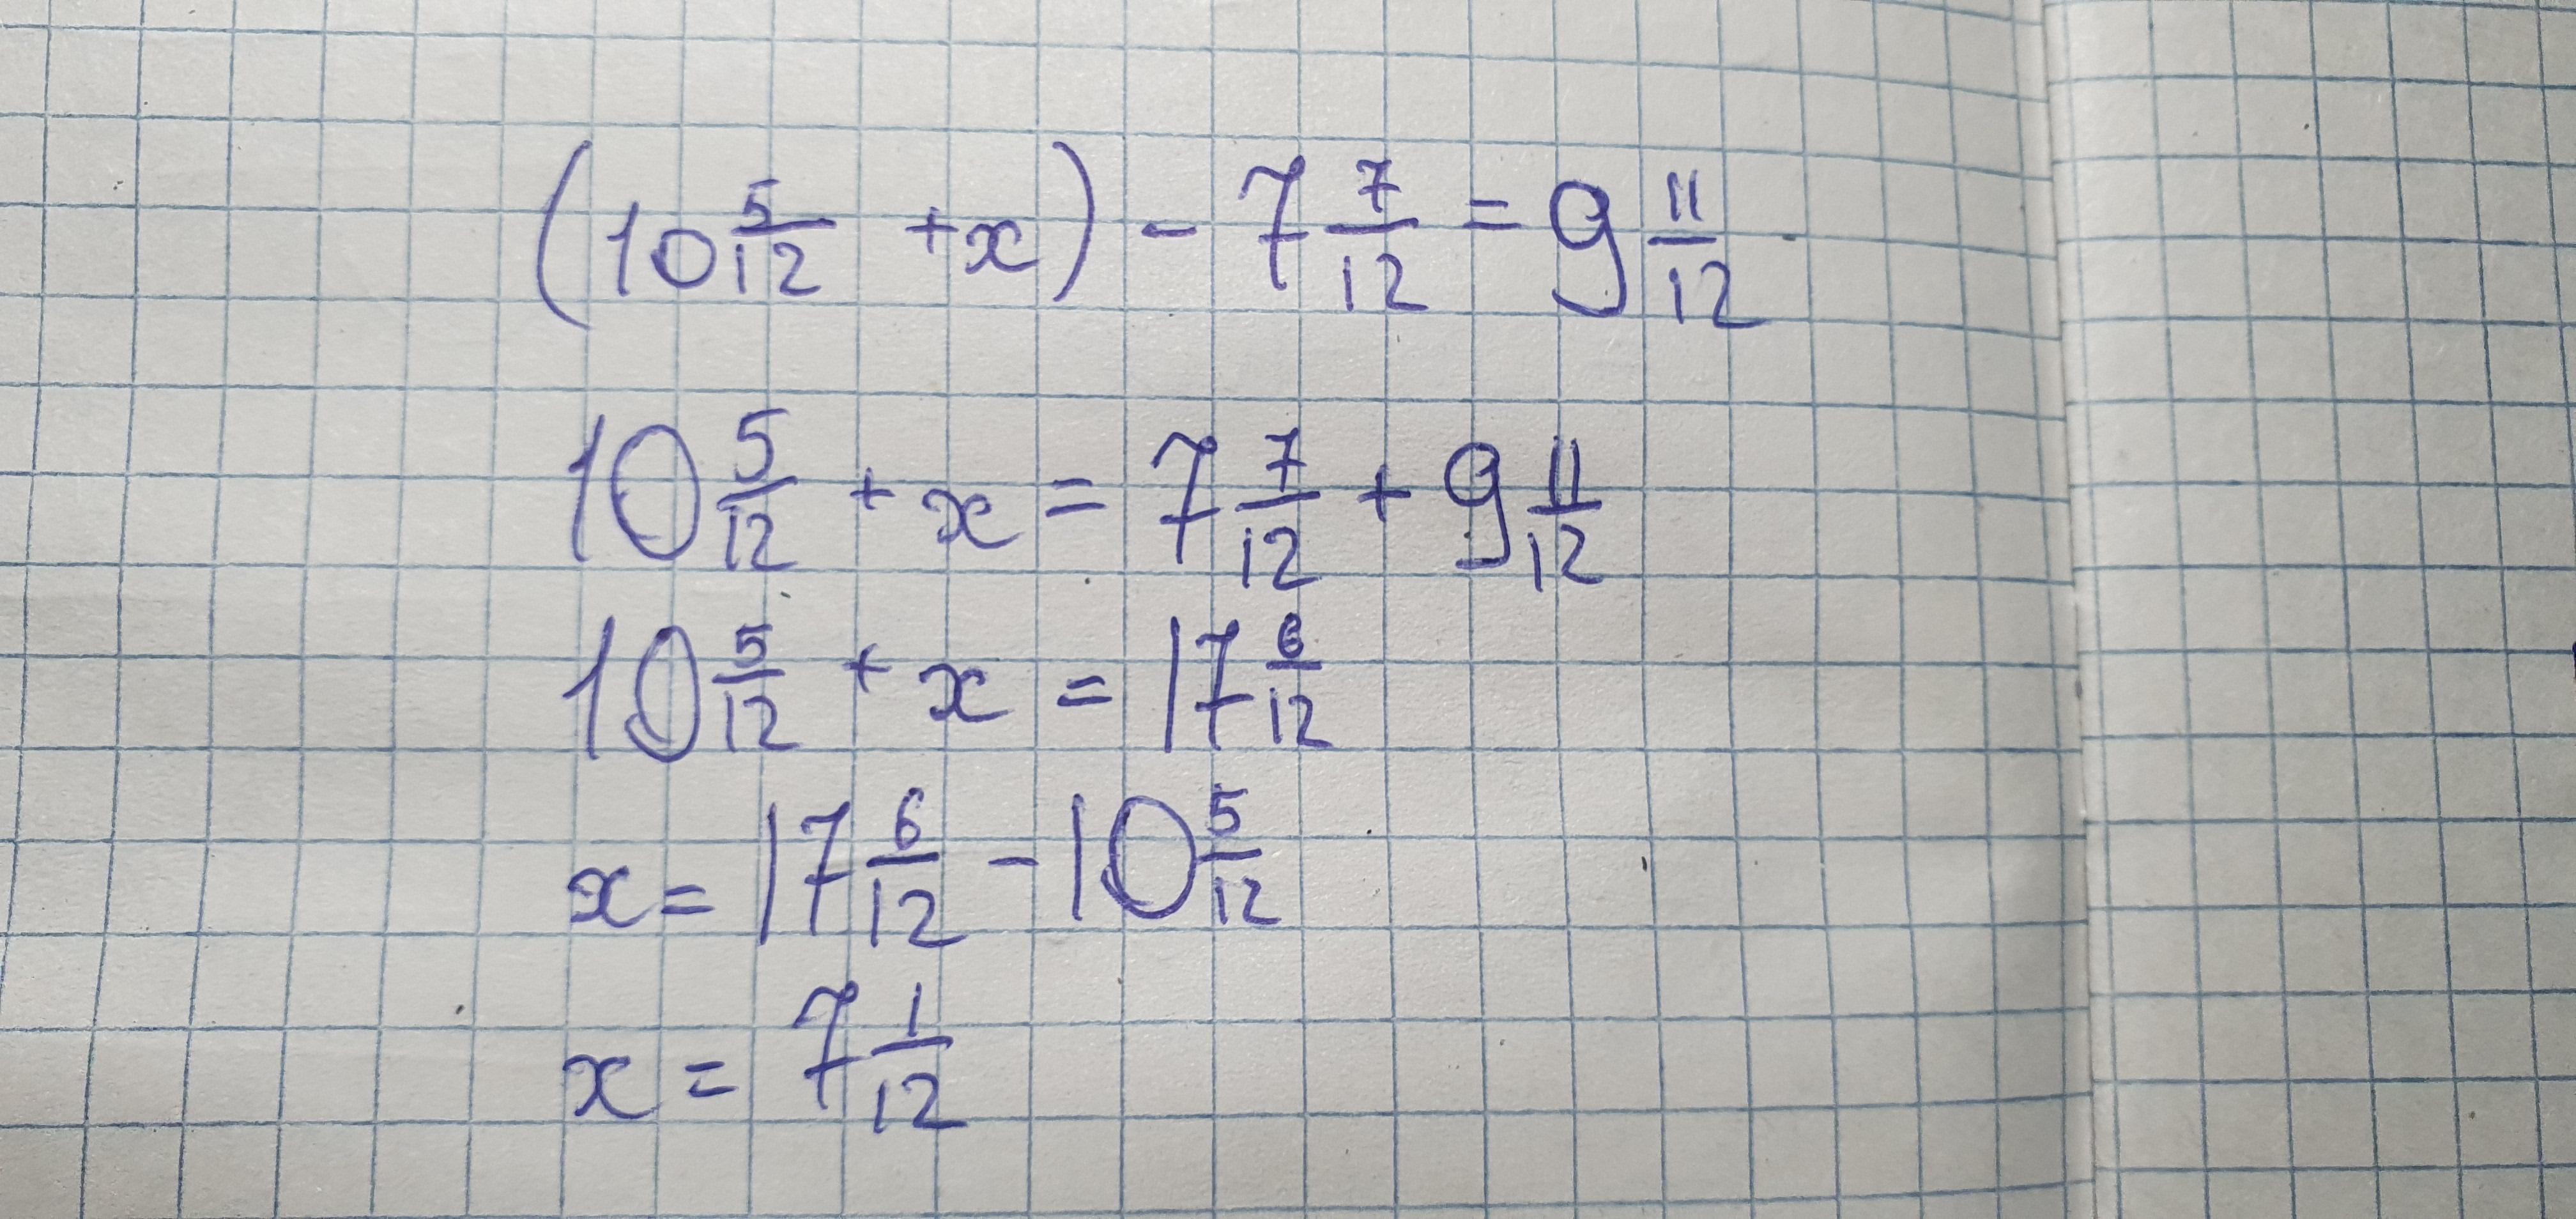 (10 5/12 + x) - 7 7/12 = 9 11/12
10 5/12 + x = 7 7/12 + 9 11/12
10 5/12 + x = 17 6/12
x = 17 6/12 - 10 5/12
x = 7 1/12